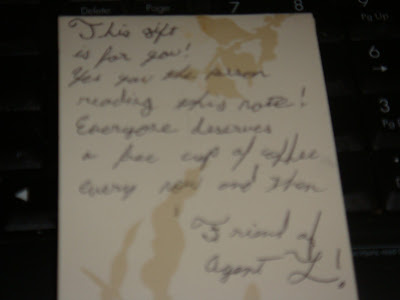 Delete Page 7 8 9
Pg Up
6
3
This gift
is for you!
Yes you the person
reading this note!
Everyone deserves
a free cup of coffee
every now and then
Friend of
Agent L!